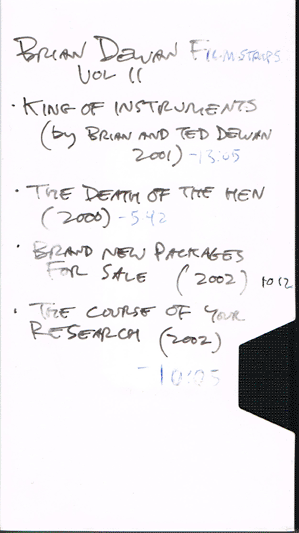 BRIAN DEWAN FILMSTRIPS
VOL II
· KING OF INSTRUMENTS
(by BRIAN AND TED DEWAN
2001) -13:05
· THE DEATH OF THE HEN
(2000) -5:42
· BRAND NEW PACKAGES
FOR SALE (2002) 10:12
· THE COURSE OF YOUR
RESEARCH (2002)
- 10:05